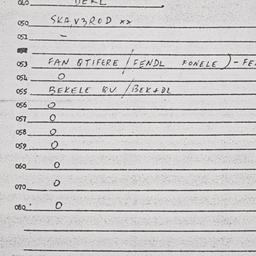 050 SKA,V3ROD xx
051 -
053 FAN QTIFERE / FENDL FONELE ) - FE
054 O
055 BEKELE QV / BEK+DL
056 O
057 O
058 O
059 O
060 O
070 O
080 O